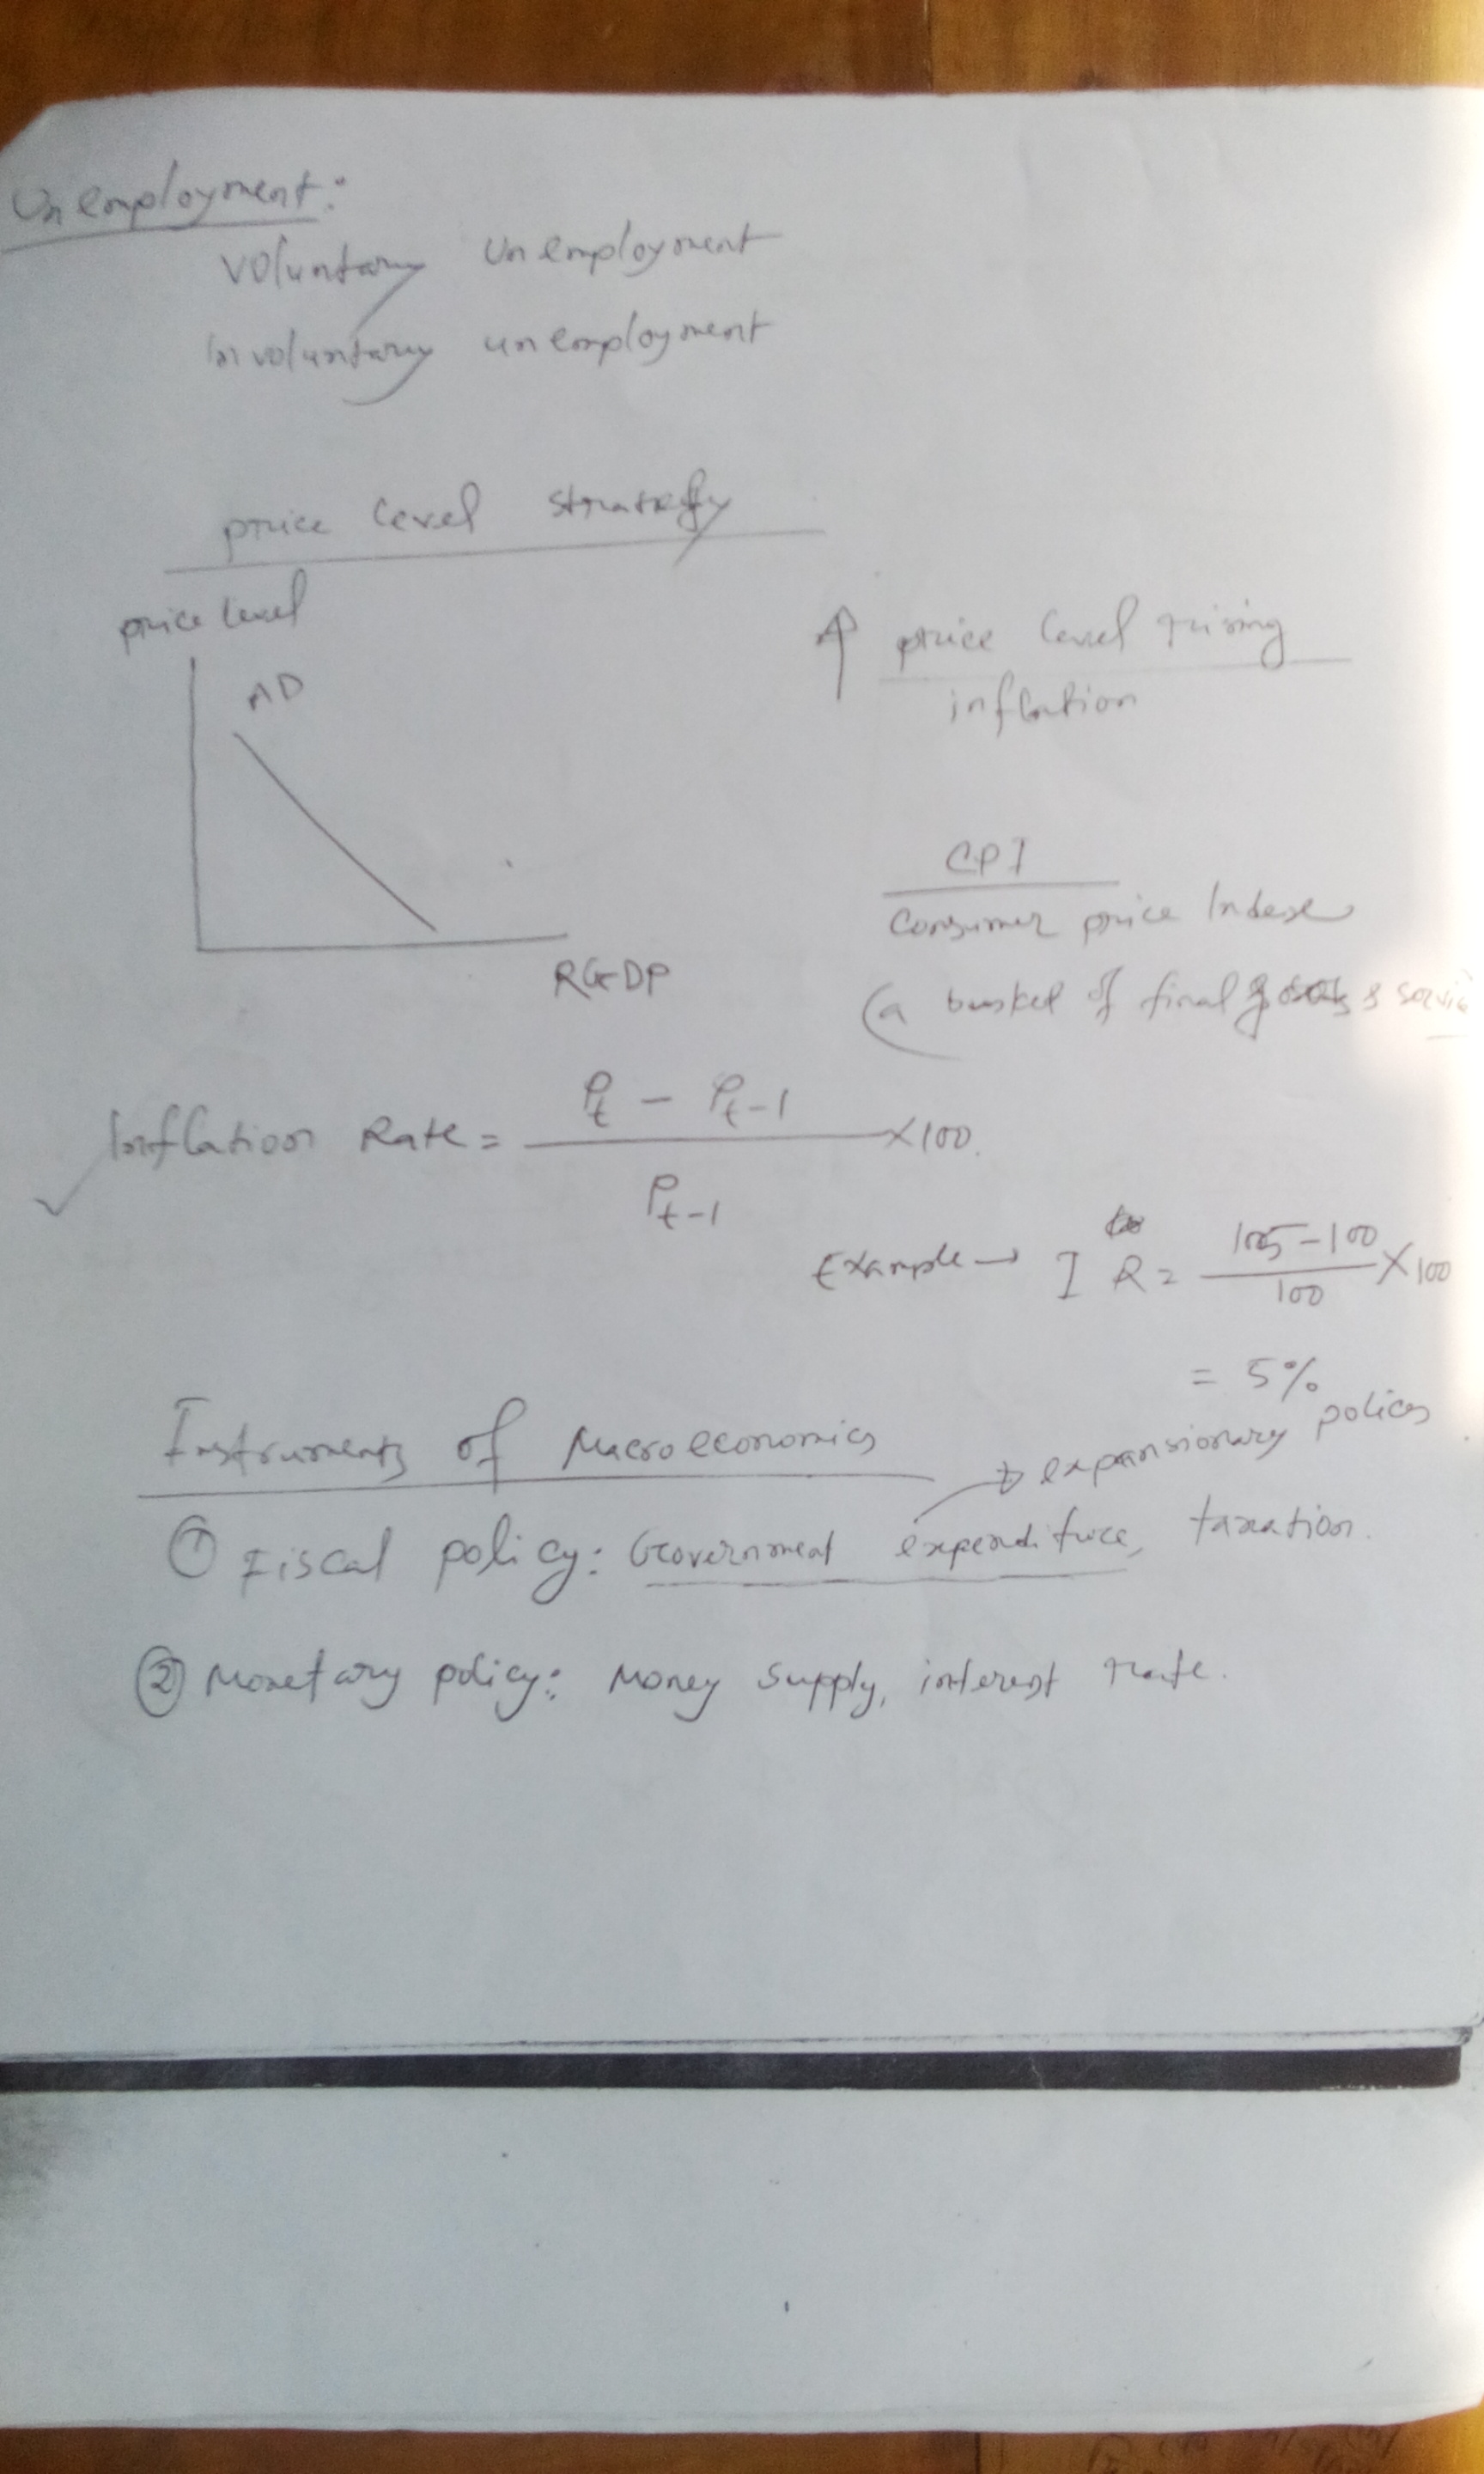 Unemployment:
voluntary unemployment
involuntary unemployment
price level strategy
price level
AD
RGDP
price level rising
inflation
CPI
Consumer price Index
(a busket of final goods & servic
Inflation Rate = Pt - Pt-1 / Pt-1 ×100.
Example → I R = 105-100 / 100 ×100
= 5%
Instruments of Macroeconomics
→ expansionary polices
① Fiscal policy: Government expenditure, taxation.
② Monetary policy: Money supply, interest rate.